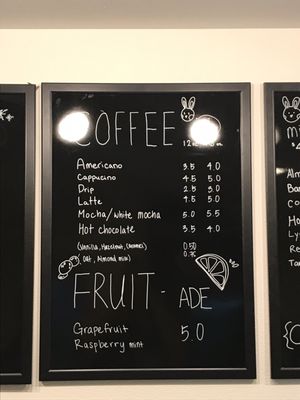 COFFEE
12oz
Americano 3.5 4.0
Cappucino 4.5 5.0
Drip 2.5 3.0
Latte 4.5 5.0
Mocha/White mocha 5.0 5.5
Hot chocolate 3.5 4.0
(Vanilla, Hazelnut, Caramel) 0.50
(Oat, Almond milk) 0.75
FRUIT - ADE
Grapefruit 5.0
Raspberry mint
m
Alm
Ba
Co
Ly
Re
Ta